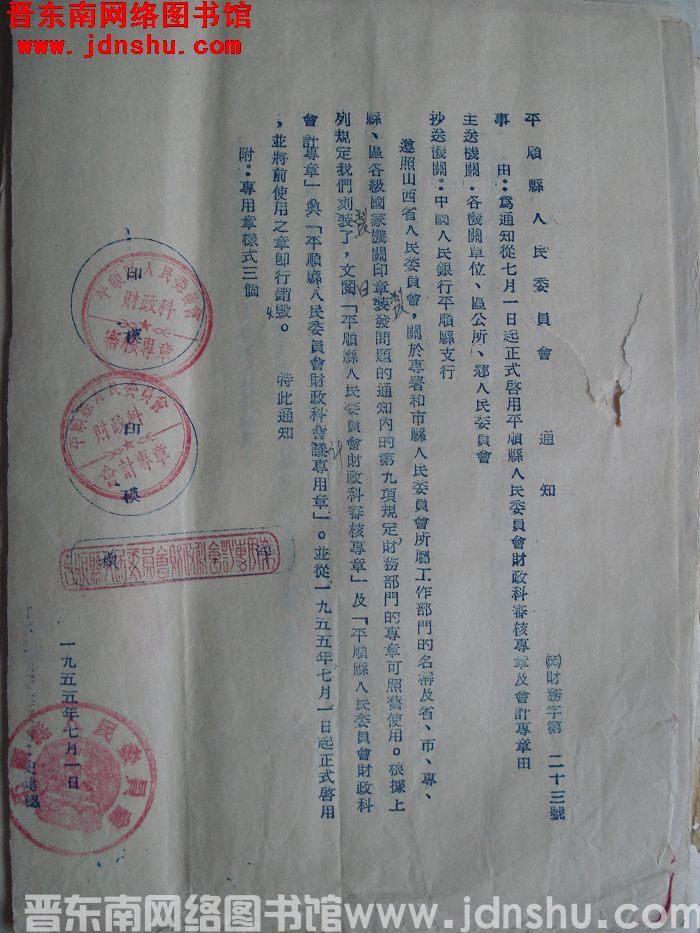 晋东南网络图书馆
www.jdnshu.com
平順縣人民委員會 通知
財務字第 二十三號
事 由：爲通知從七月一日起正式啓用平順縣人民委員會財政科審核專章及會計專章由
主送機關：各機關單位、區公所、鄉人民委員會
抄送機關：中國人民銀行平順縣支行
遵照山西省人民委員會，關於專署和市縣人民委員會所屬工作部門的名稱及省、市、專、
縣、區各級國家機關印章裝發問題的通知內的第九項規定財務部門的專章可照舊使用。根據上
列規定我們刻裝了，文閱「平順縣人民委員會財政科審核專章」及「平順縣人民委員會財政科
會計專章」與「平順縣人民委員會財政科會議專用章」。並從一九五五年七月一日起正式啓用
，並將前使用之章即行銷毀。 特此通知
附：專用章樣式三個
製
日
製
計
平順縣人民委員會
財政科
審核專章
印模
平順縣人民委員會
財政科
會計專章
印模
平順縣人民委員會財政科會計專用章
一九五五年七月一日
平順縣人民委員會
晋东南网络图书馆www.jdnshu.com